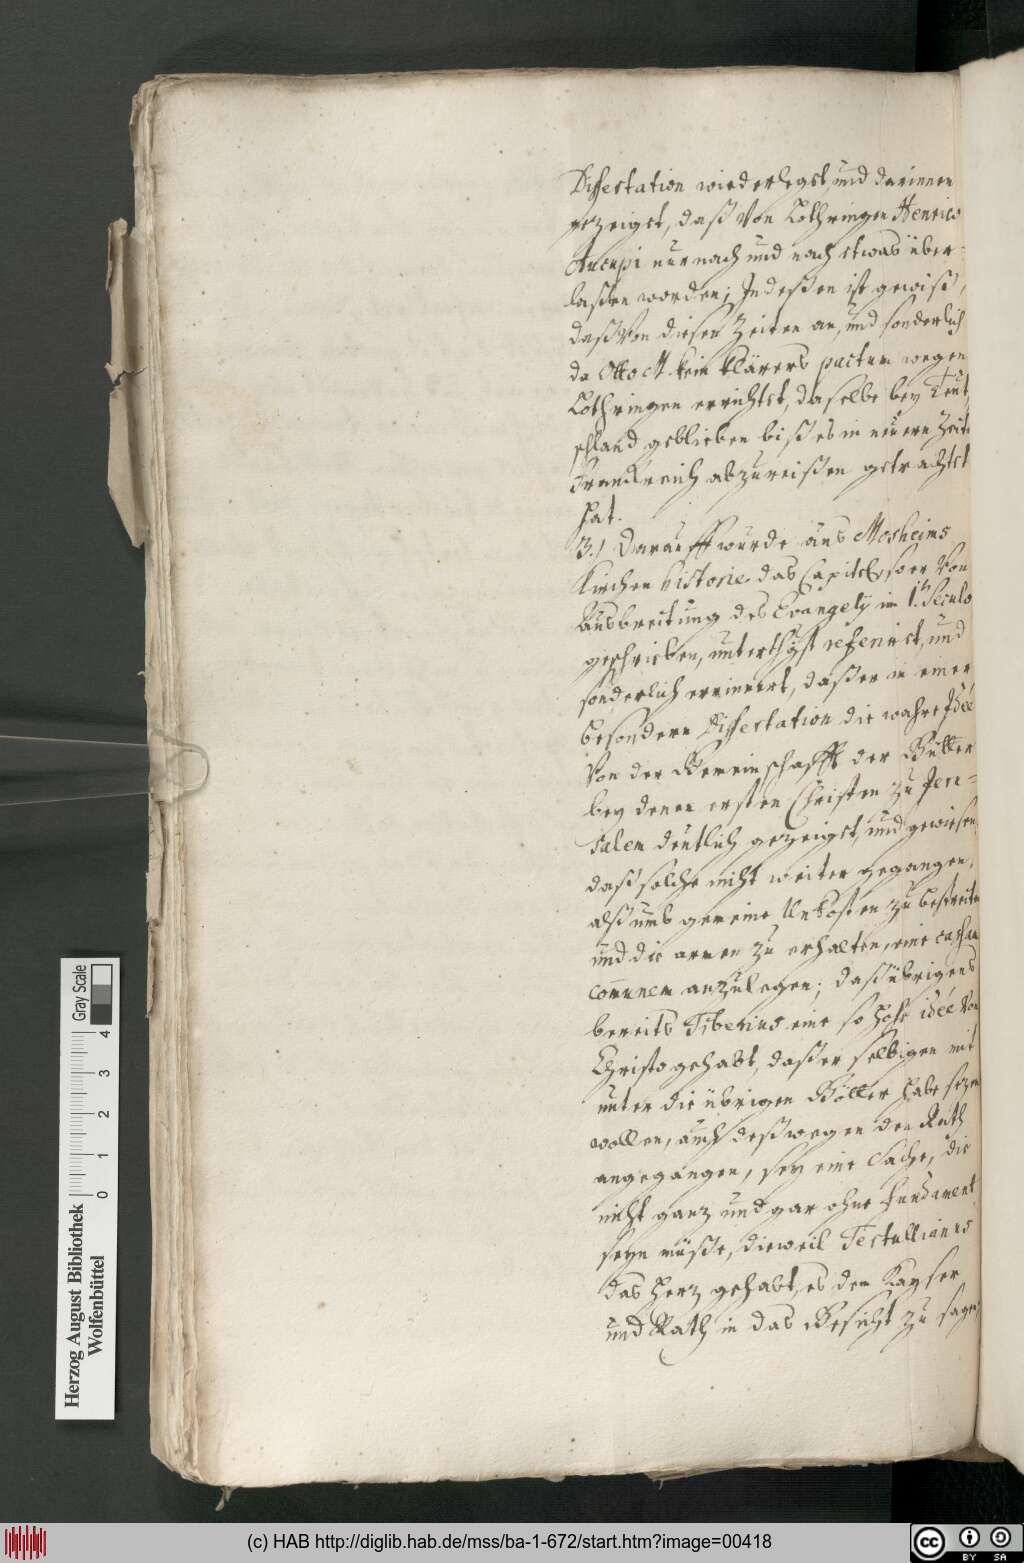 Dissertation wiederlegst, und darinnen
gezeiget, daß von Lothringen Henrico
Aucupi nur nach und nach etwas über-
laßen worden; Indeßen ist gewiß,
daß von diesen Zeiten an, und sonderlich
da Otto M. kein klärers pactum wegen
Lothringen errichtet, daselbe bey Teut-
schland geblieben biß es in neuern Zeiten
Franckreich abzureißen getrachtet
hat.
3.) Darauff wurde aus Mosheims
Kirchen historie das Capitel, so er von
Ausbreitung des Evangelij im 1.n Seculo
geschrieben, unterthgst referirt, und
sonderlich erinnert, daß er in einer
besondern Dissertation die wahre Idée
von der Gemeinschafft der Gütter
bey denen ersten Christen zu Jeru-
salem deutlich gezeiget, und gewiesen,
daß solche nicht weiter gegangen,
alß umb gemeine Unkosten zu bestreiten
und die armen zu erhalten, eine casham
comunem anzulegen; daß übrigens
bereits Tiberius eine so hohe idée von
Christo gehabt, daß er selbigen mit
unter die übrigen Götter habe sezen
wollen, auch deßwegen den Rath
angegangen, sey eine Sache, die
nicht ganz und gar ohne fundament
seyn müße, dieweil Tertullianus
das Herz gehabt, es dem Kayser
und Rath in das Gesicht zu sagen,
Herzog August Bibliothek
Wolfenbüttel
0 1 2 3 4
Gray Scale
(c) HAB http://diglib.hab.de/mss/ba-1-672/start.htm?image=00418
cc BY SA